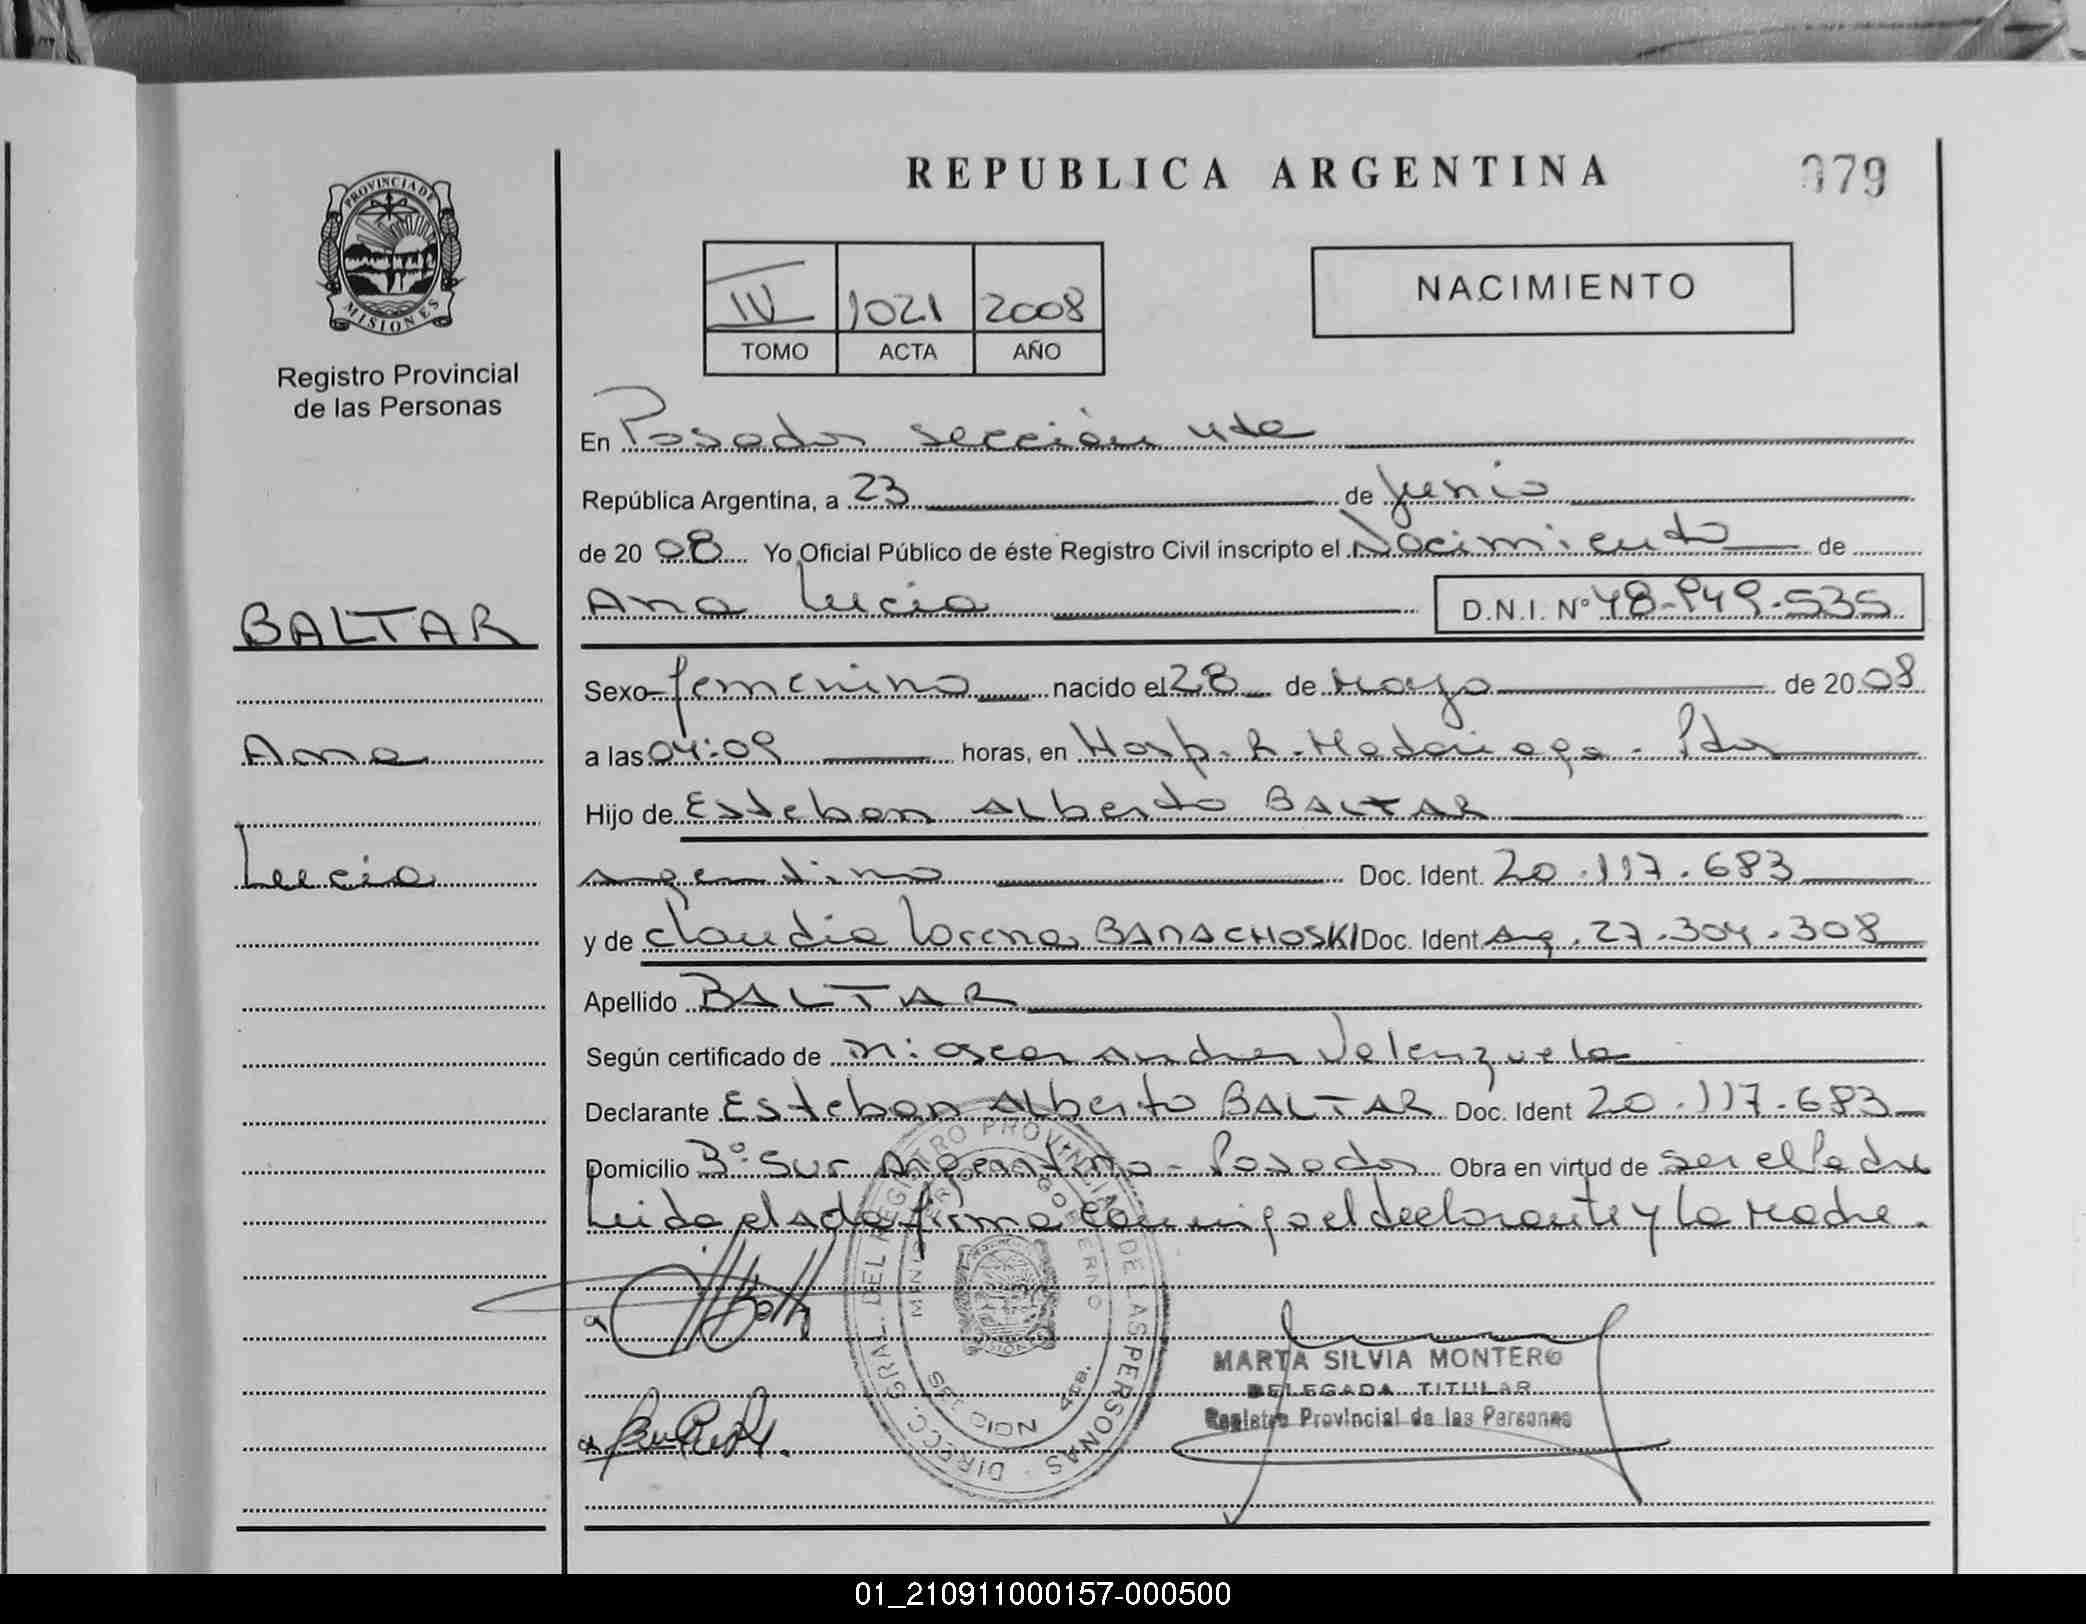 REPUBLICA ARGENTINA
079
PROVINCIA DE
MISIONES
Registro Provincial
de las Personas
NACIMIENTO
IV 1021 2008
TOMO ACTA AÑO
En Posadas sección 4ta
República Argentina, a 23 de Junio
de 20 08 Yo Oficial Público de éste Registro Civil inscripto el Nacimiento de
Ana Lucia D.N.I. Nº 48.949.535
BALTAR
Ana
Lucia
Sexo femenino nacido el 28 de Mayo de 20 08
a las 04:09 horas, en Hosp. R. Madariaga - Pdas
Hijo de Esteban Alberto BALTAR
argentino Doc. Ident. 20.117.683
y de Claudia Lorena BANACHOSKI Doc. Ident Arg. 27.304.308
Apellido BALTAR
Según certificado de Oscar Andres Valenzuela
Declarante Esteban Alberto BALTAR Doc. Ident 20.117.683
Domicilio Bº Sur Argentino - Posadas Obra en virtud de ser el Padre
Leida el acta firma conmigo el declarante y la Madre.
DIRECC. GRAL. DEL REGISTRO PROVINCIAL DE LAS PERSONAS
GOBIERNO
4ta.
MARTA SILVIA MONTERO
DELEGADA TITULAR
Registro Provincial de las Personas
01_210911000157-000500